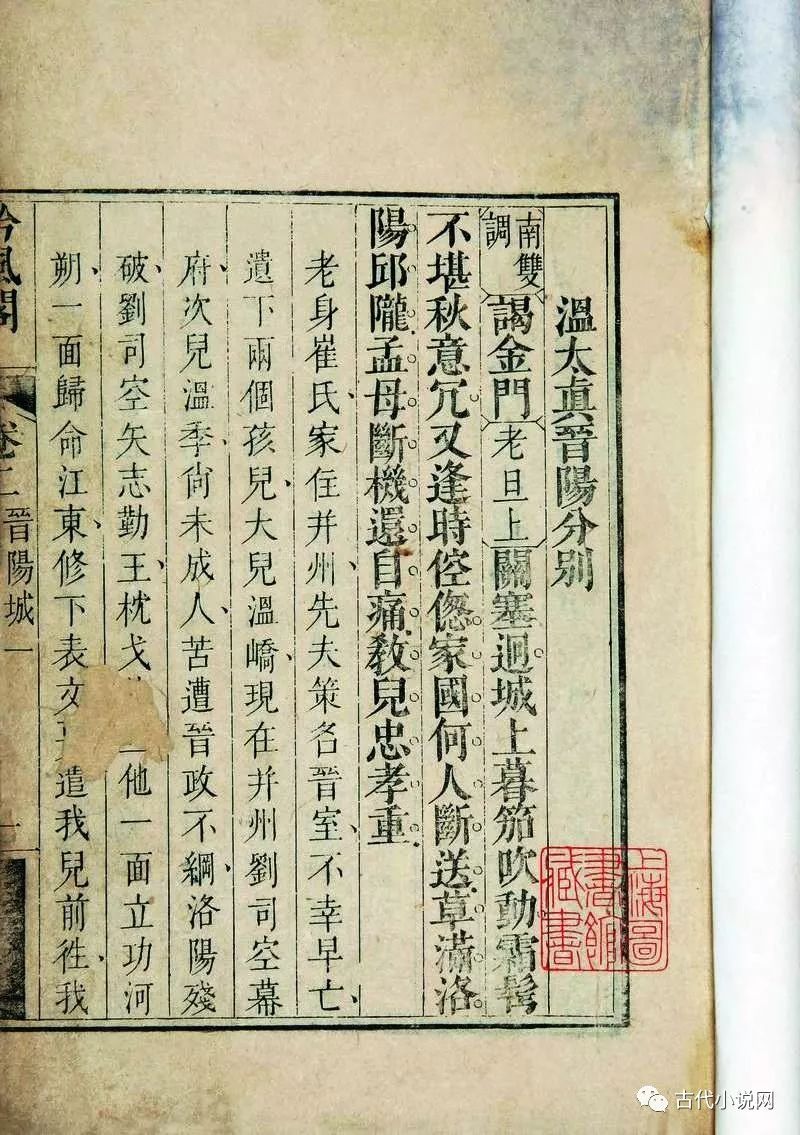 溫太眞晉陽分別
南雙調 謁金門 老旦上 關塞迥城上暮笳吹動霜髩
不堪秋意冗又逢時倥傯家國何人斷送草滿洛
陽邱隴孟母斷機還自痛敎兒忠孝重
老身崔氏家住并州先夫策名晉室不幸早亡
遺下兩個孩兒大兒溫嶠現在并州劉司空幕
府次兒溫季尙未成人苦遭晉政不綱洛陽殘
破劉司空矢志勤王枕戈 他一面立功河
朔一面歸命江東修下表文 遣我兒前往我
吟風閣 卷二 晉陽城 一
上海圖書館藏書
古代小说网